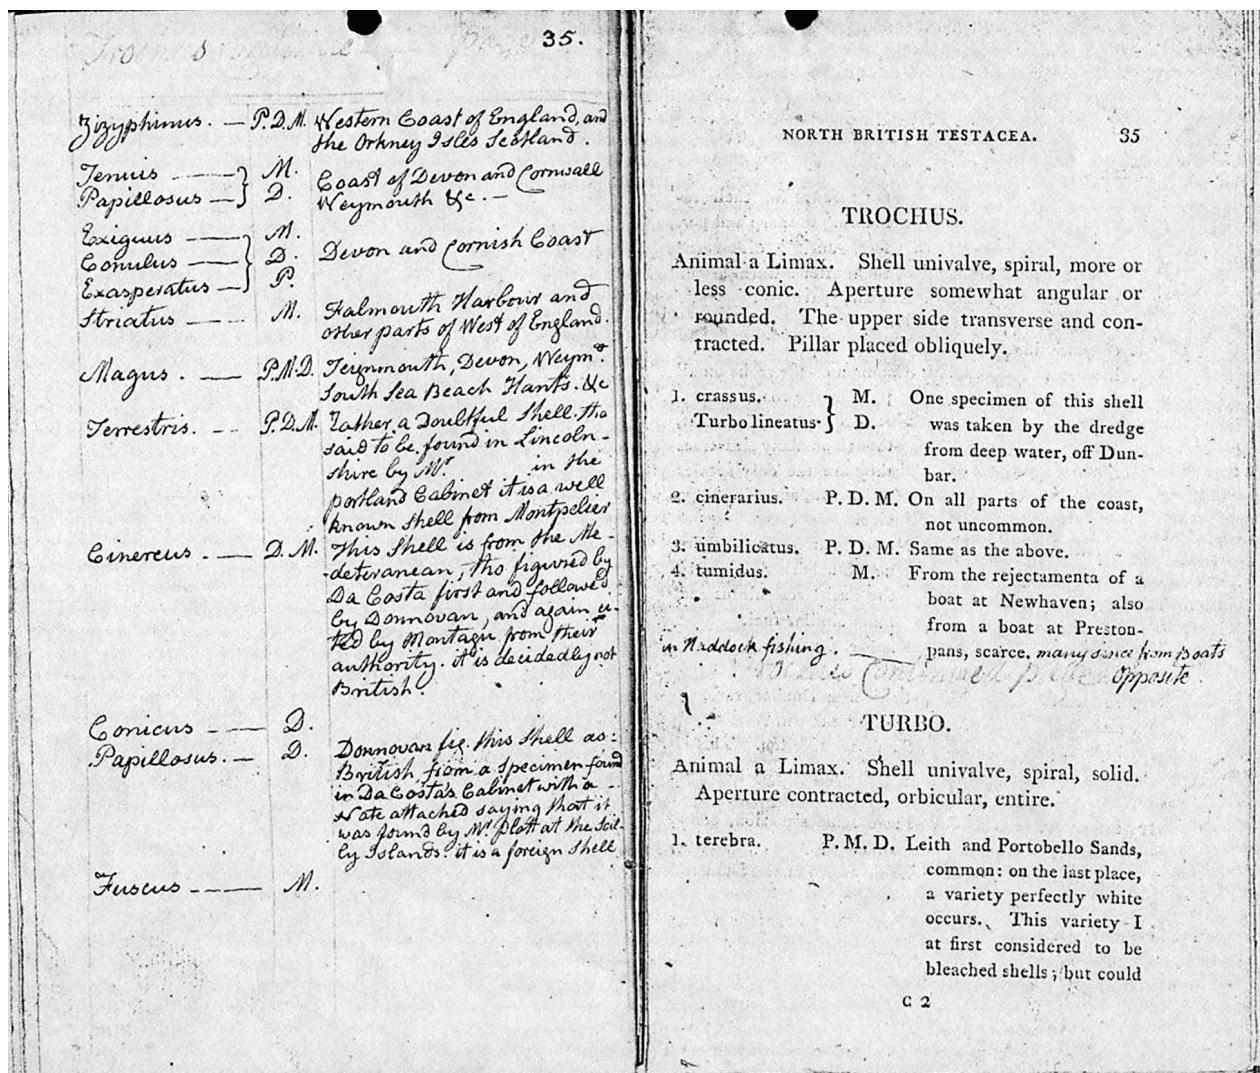 35.
Zizyphinus. — P. D. M. Western Coast of England, and
the Orkney Isles Scotland.
Tenuis — } M. Coast of Devon and Cornwall
Papillosus — } D. Weymouth &c. —
Exiguus — } M.
Conulus — } D. Devon and Cornish Coast
Exasperatus — } P.
Striatus — M. Falmouth Harbour and
other parts of West of England.
Magus. — P. M. D. Teignmouth, Devon, Weymth.
South Sea Beach Hants. &c
Terrestris. -- P. D. M. Rather a Doubtful Shell. tho
said to be found in Lincoln-
shire by Mr in the
portland Cabinet it is a well
known shell from Montpelier
Cinereus. — D. M. This Shell is from the Me-
deteranean, tho figured by
Da Costa first and followed
by Donnovan, and again ci-
ted by Montagu from their
authority. it is decidedly not
British.
Conicus — D.
Papillosus. — D. Donnovan fig. this Shell as
British, from a Specimen found
in Da Costa's Cabinet with a
Note attached saying that it
was found by Mr. Platt at the Scil-
ly Islands. it is a foreign Shell
Fuscus — M.
NORTH BRITISH TESTACEA. 35
TROCHUS.
Animal a Limax. Shell univalve, spiral, more or
less conic. Aperture somewhat angular or
rounded. The upper side transverse and con-
tracted. Pillar placed obliquely.
1. crassus. } M. One specimen of this shell
Turbo lineatus } D. was taken by the dredge
from deep water, off Dun-
bar.
2. cinerarius. P. D. M. On all parts of the coast,
not uncommon.
3. umbilicatus. P. D. M. Same as the above.
4. tumidus. M. From the rejectamenta of a
boat at Newhaven; also
from a boat at Preston-
pans, scarce. many since from Boats
in Haddock fishing. —
Continued Opposite.
TURBO.
Animal a Limax. Shell univalve, spiral, solid.
Aperture contracted, orbicular, entire.
1. terebra. P. M. D. Leith and Portobello Sands,
common: on the last place,
a variety perfectly white
occurs. This variety I
at first considered to be
bleached shells; but could
C 2